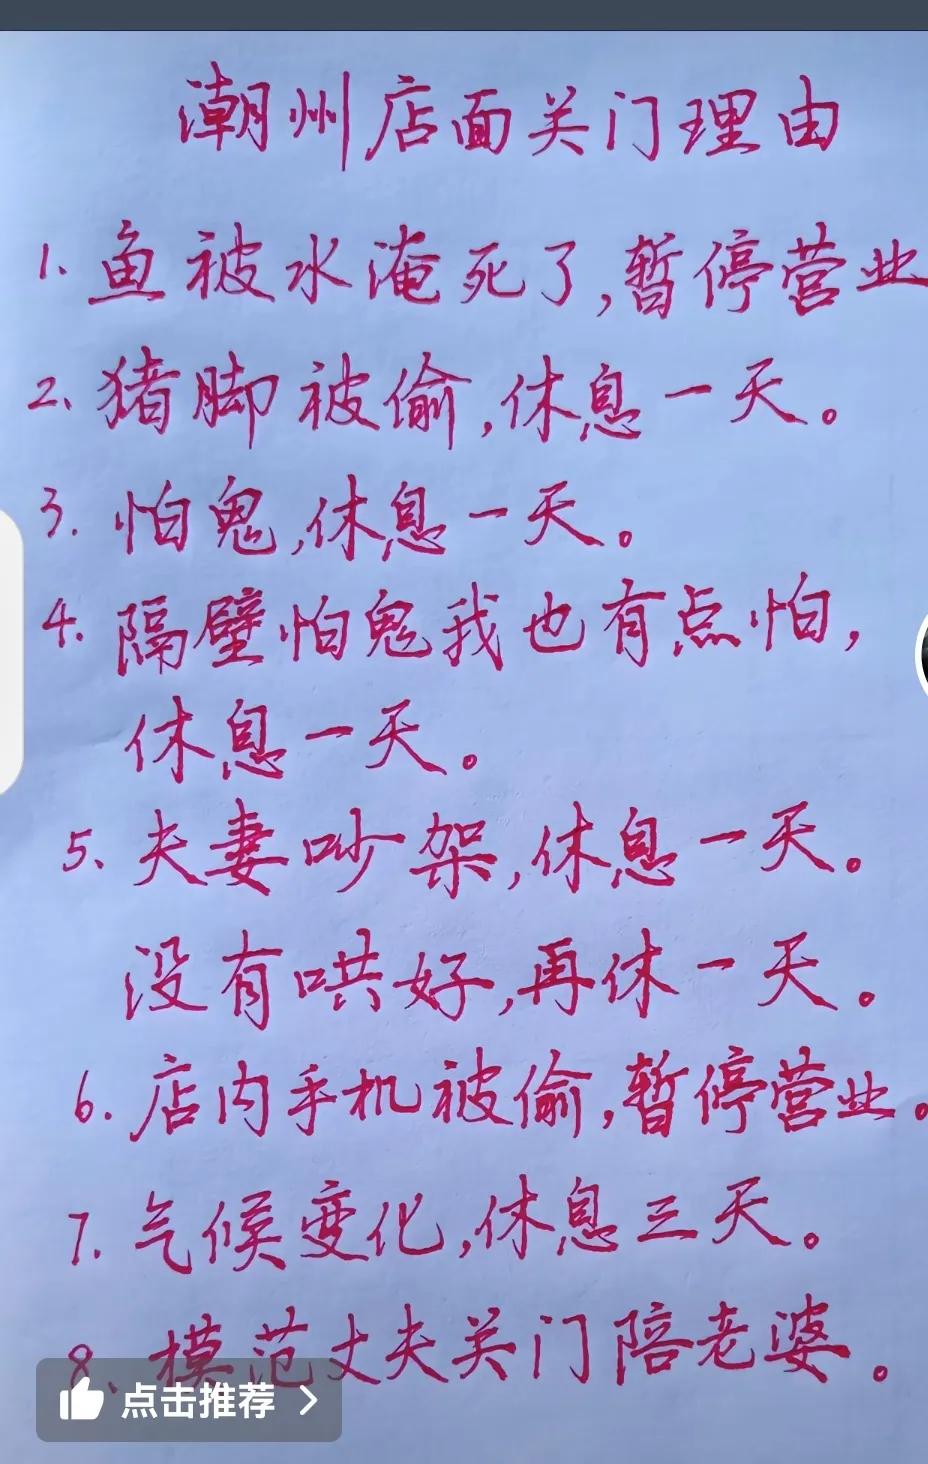 潮州店面关门理由
1.鱼被水淹死了,暂停营业
2、猪脚被偷,休息一天。
3.怕鬼,休息一天。
4.隔壁怕鬼我也有点怕,
休息一天。
5、夫妻吵架,休息一天。
没有哄好,再休一天。
6.店内手机被偷,暂停营业。
7.气候变化,休息三天。
8、模范丈夫关门陪老婆。
点击推荐